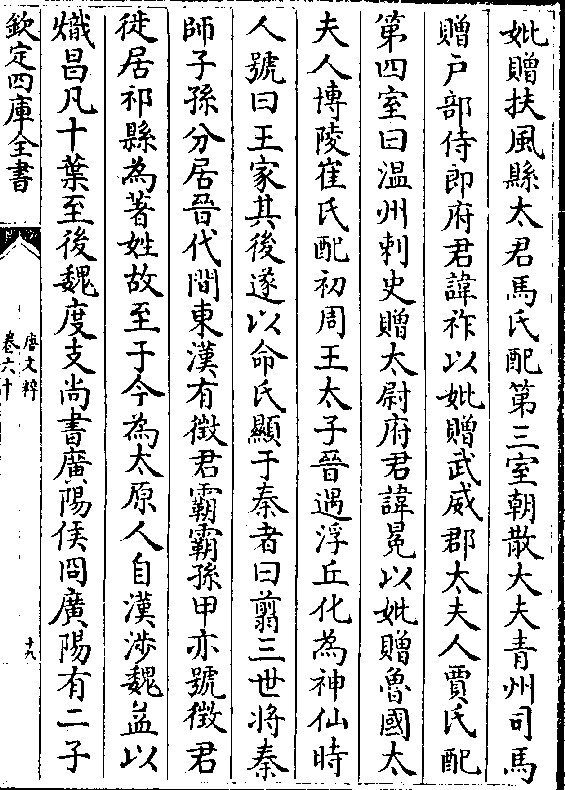 妣贈扶風縣太君馬氏配第三室朝散大夫青州司馬
贈戸部侍郎府君諱祚以妣贈武威郡太夫人賈氏配
第四室曰温州刺史贈太尉府君諱冕以妣贈魯國太
夫人博陵崔氏配初周王太子晉遇浮丘化為神仙時
人號曰王家其後遂以命氏顯于秦者曰翦三世将秦
師子孫分居晉代間東漢有徵君霸霸孫甲亦號徵君
徙居祁縣為著姓故至于今為太原人自漢涉魏益以
熾昌凡十葉至後魏度支尚書廣陽侯冏廣陽有二子
欽定四庫全書
唐文粹
卷六十
十九